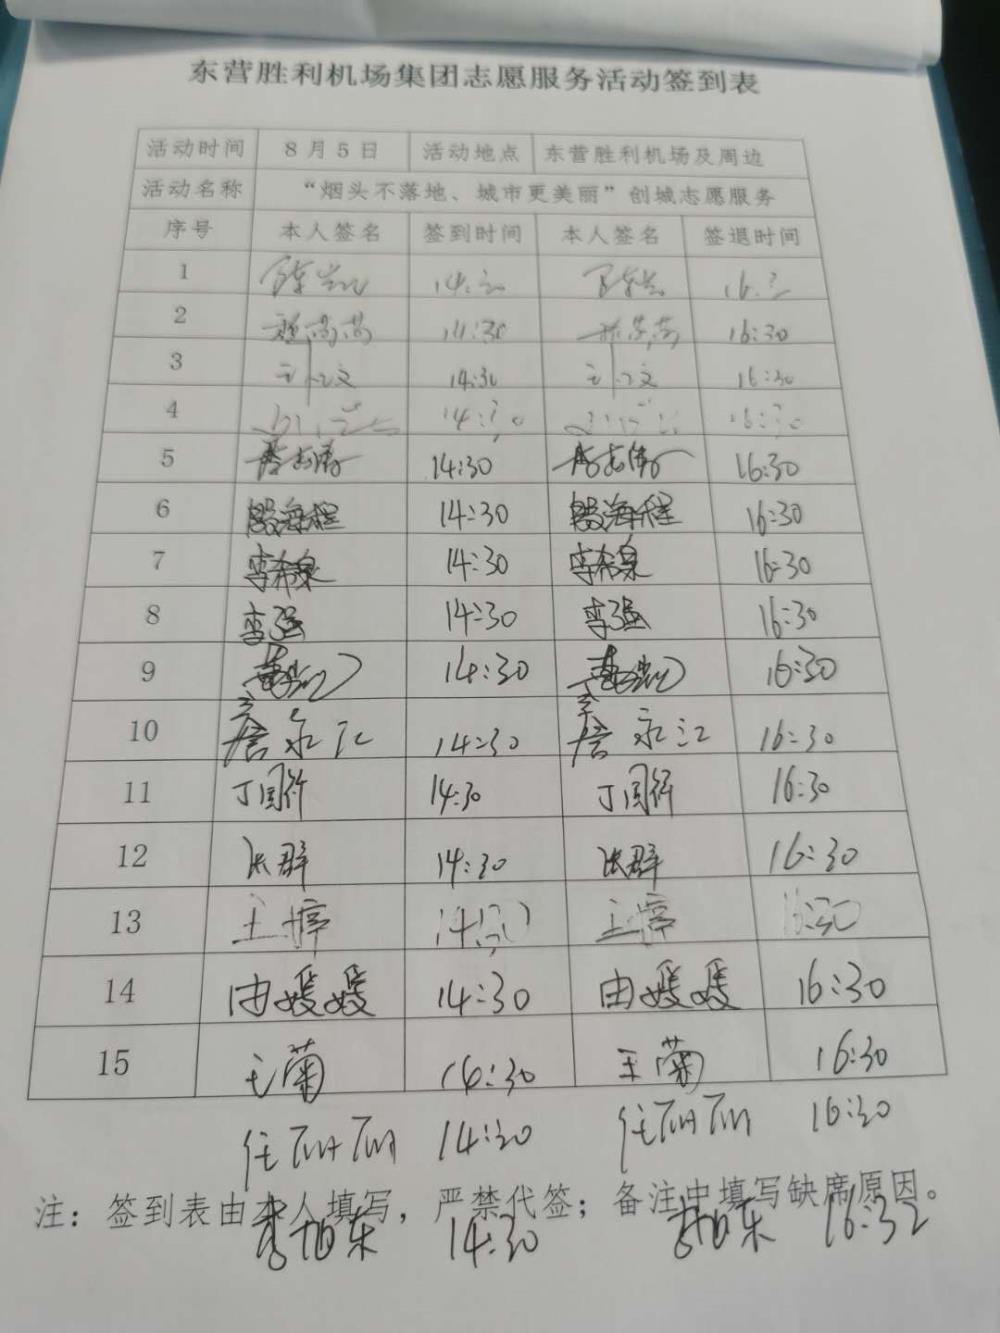 东营胜利机场集团志愿服务活动签到表
活动时间 8月5日 活动地点 东营胜利机场及周边
活动名称 “烟头不落地、城市更美丽”创城志愿服务
序号 本人签名 签到时间 本人签名 签退时间
1 14:30
2 14:30 16:30
3 14:30 16:30
4 14:30 16:30
5 14:30 16:30
6 殷海程 14:30 殷海程 16:30
7 李希泉 14:30 李希泉 16:30
8 李强 14:30 李强 16:30
9 14:30 16:30
10 詹永江 14:30 詹永江 16:30
11 丁国衍 14:30 丁国衍 16:30
12 张群 14:30 张群 16:30
13 王婷 14:30 王婷 16:30
14 由媛媛 14:30 由媛媛 16:30
15 王菊 14:30 王菊 16:30
任丽丽 14:30 任丽丽 16:30
注：签到表由本人填写，严禁代签；备注中填写缺席原因。
李旭东 14:30 李旭东 16:32